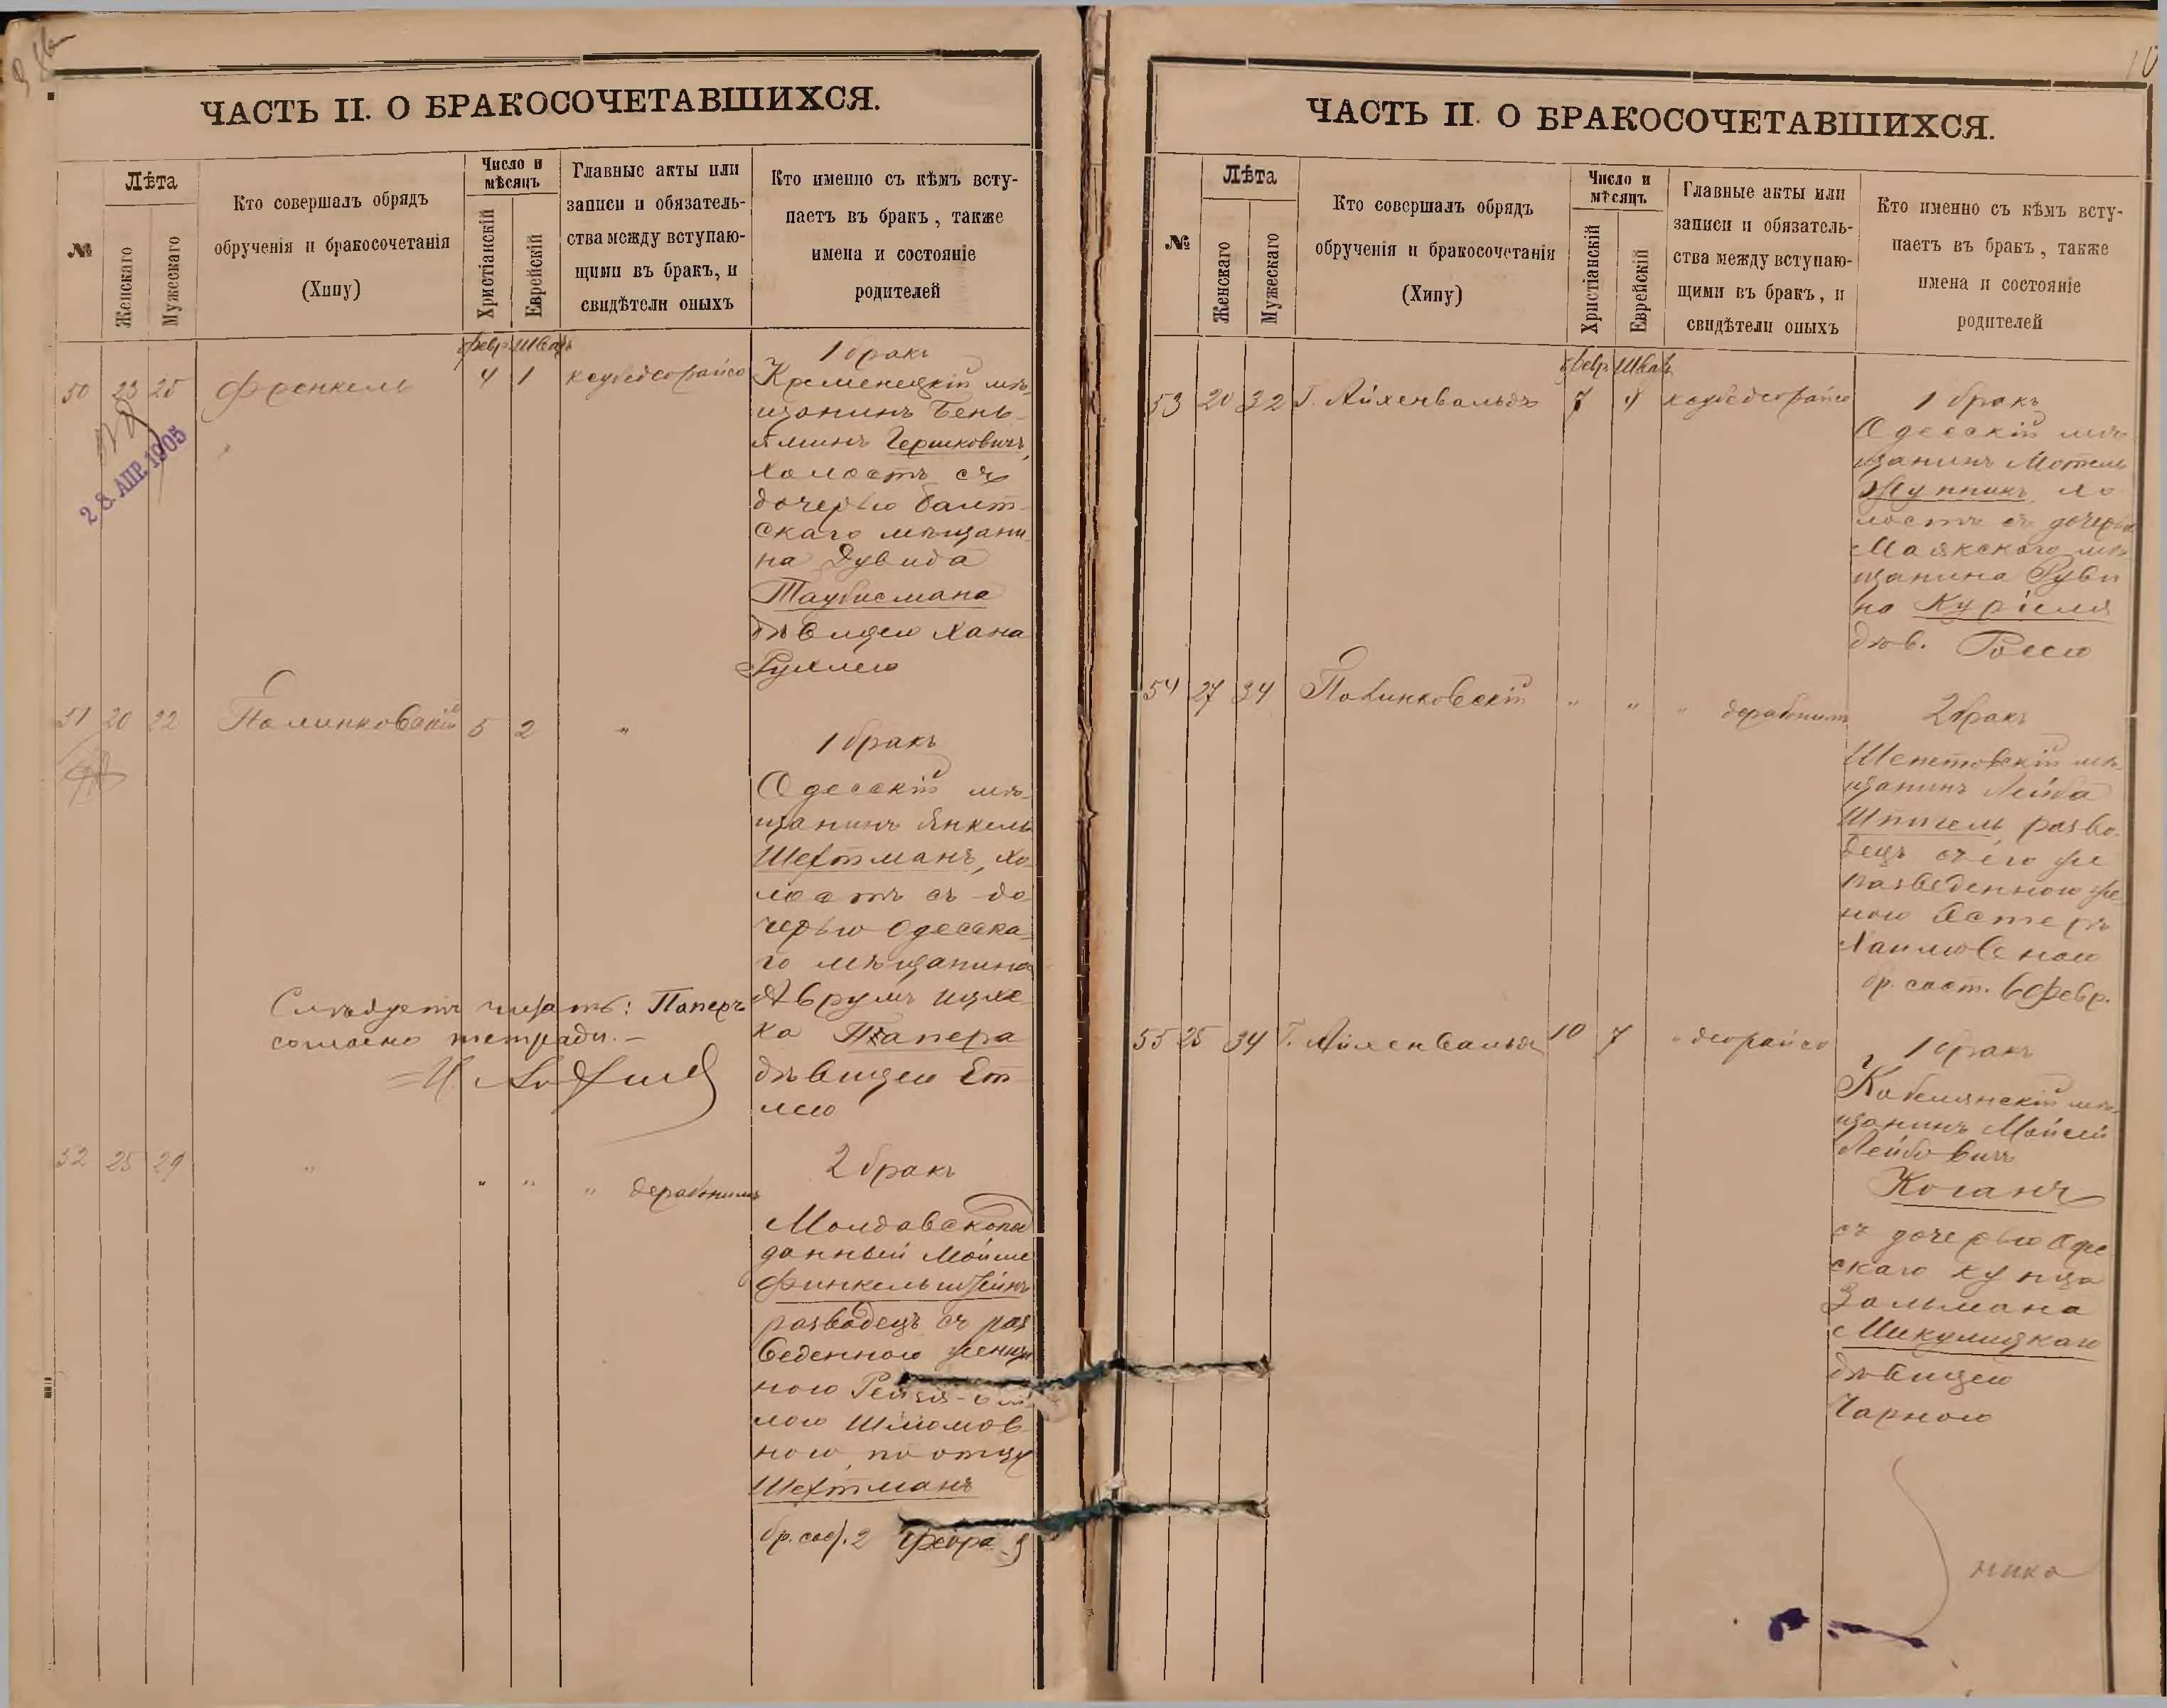 ЧАСТЬ II. О БРАКОСОЧЕТАВШИХСЯ.
№
Лѣта
Женскаго
Мужескаго
Кто совершалъ обрядъ
обрученія и бракосочетанія
(Хипу)
Число и
мѣсяцъ
Христіанскій
Еврейскій
Главные акты или
записи и обязатель-
ства между вступаю-
щими въ бракъ, и
свидѣтели оныхъ
Кто именно съ кѣмъ всту-
паетъ въ бракъ, также
имена и состояніе
родителей
Февр. Шват
50 23 25 Френкель 4 1
28 АПР. 1905
1 бракъ
Кременецкій мѣ-
щанинъ Бень-
яминъ Гершковичъ,
холостъ съ
дочерью балт-
скаго мѣщани-
на Дувида
Таубисмана
дѣвицею Хана
Рухлею
51 20 22 Полинковскій 5 2 "
1 бракъ
Одесскій мѣ-
щанинъ Янкель
Шехтманъ, хо-
лостъ съ до-
черью Одесска-
го мѣщанина
Аврумъ Ицхо-
ка Тапера
дѣвицею Ет-
лею
Слѣдуетъ читать: Паперъ
согласно тетради.-
52 25 29 " " " " дерабонимъ
2 бракъ
Молдавскопод
данный Мойше
Финкельштейнъ
разводецъ съ раз
веденною женщи
ною
лою Шмомов
ною, по отцу
Шехтманъ
бр. сост. 2 февра
ЧАСТЬ II. О БРАКОСОЧЕТАВШИХСЯ.
№
Лѣта
Женскаго
Мужескаго
Кто совершалъ обрядъ
обрученія и бракосочетанія
(Хипу)
Число и
мѣсяцъ
Христіанскій
Еврейскій
Главные акты или
записи и обязатель-
ства между вступаю-
щими въ бракъ, и
свидѣтели оныхъ
Кто именно съ кѣмъ всту-
паетъ въ бракъ, также
имена и состояніе
родителей
Февр. Шват
53 20 32 Г. Айхенвальдъ 7 4
1 бракъ
Одесскій мѣ-
щанинъ Мотель
Жупникъ, хо-
лостъ съ дочерью
Маякскаго мѣ-
щанина Руви
на Куріеля
дѣв. Росею
54 27 34 Полинковскій " " " дерабонимъ
2 бракъ
Шепетовскій мѣ-
щанинъ Лейба
Шпигель, разво-
децъ съ его же
разведенною же-
ною Естеръ
Хаимовною
бр. сост. 6 февр.
55 25 34 Г. Айхенвальдъ 10 7 " деорайсо
1 бракъ
Кобелянскій мѣ-
щанинъ Мойсей
Лейбовичъ
Коганъ
съ дочерью Одес
скаго купца
Залмана
Микулицкаго
дѣвицею
Чарною